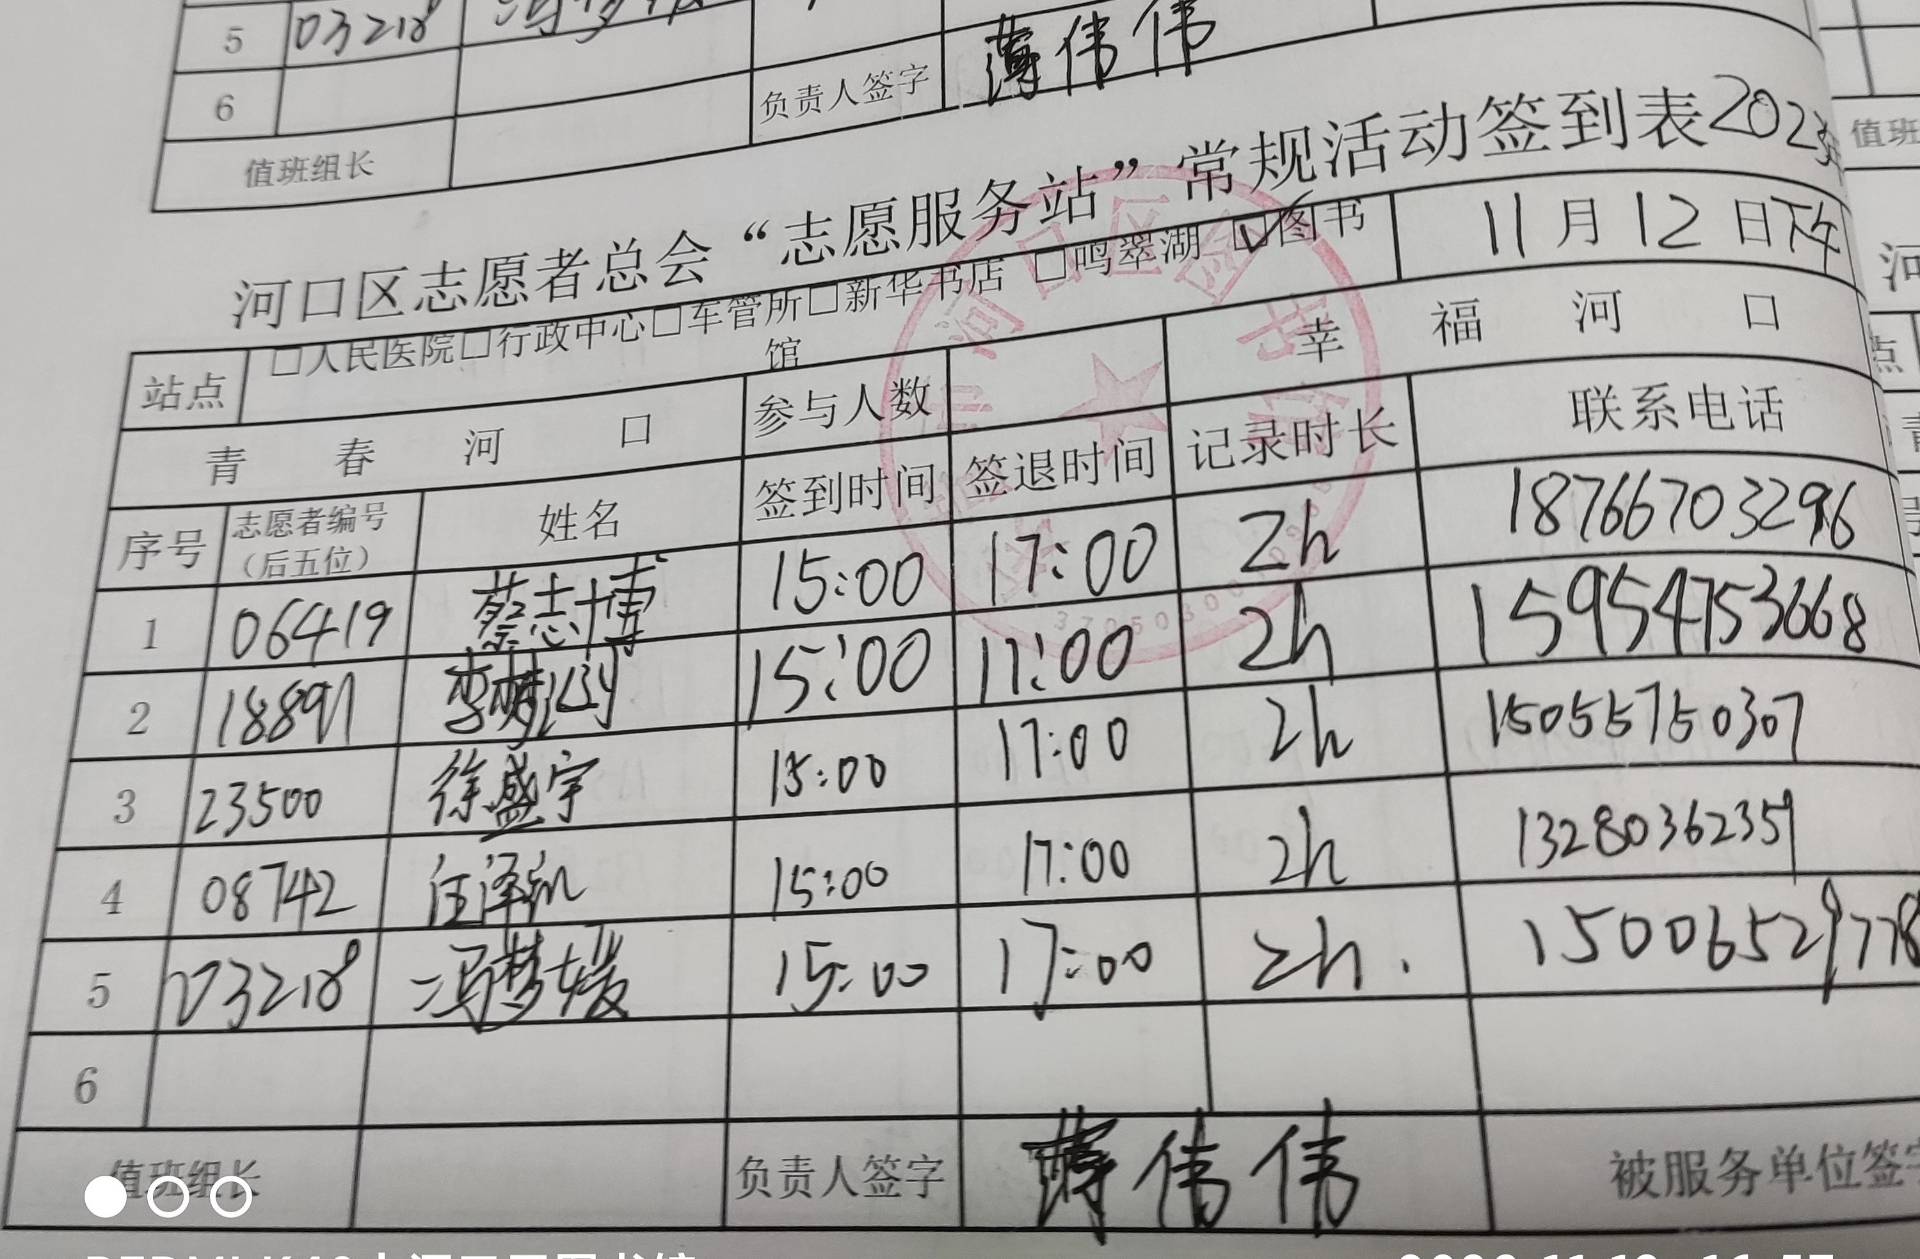 5 03218
6 负责人签字 薄伟伟
值班组长
河口区志愿者总会“志愿服务站”常规活动签到表 202
值班
站点 □人民医院□行政中心□车管所□新华书店 □鸣翠湖 ☑图书馆 11月12日下午
青春河口 参与人数 幸福河口
序号 志愿者编号（后五位） 姓名 签到时间 签退时间 记录时长 联系电话
1 06419 蔡志博 15:00 17:00 2h 18766703296
2 18891 李 15:00 17:00 2h 15954753668
3 23500 徐盛宇 15:00 17:00 2h 15055750307
4 08742 汪泽凯 15:00 17:00 2h 13280362359
5 03218 冯梦媛 15:00 17:00 2h. 15006529778
6
值班组长 负责人签字 薄伟伟 被服务单位签字